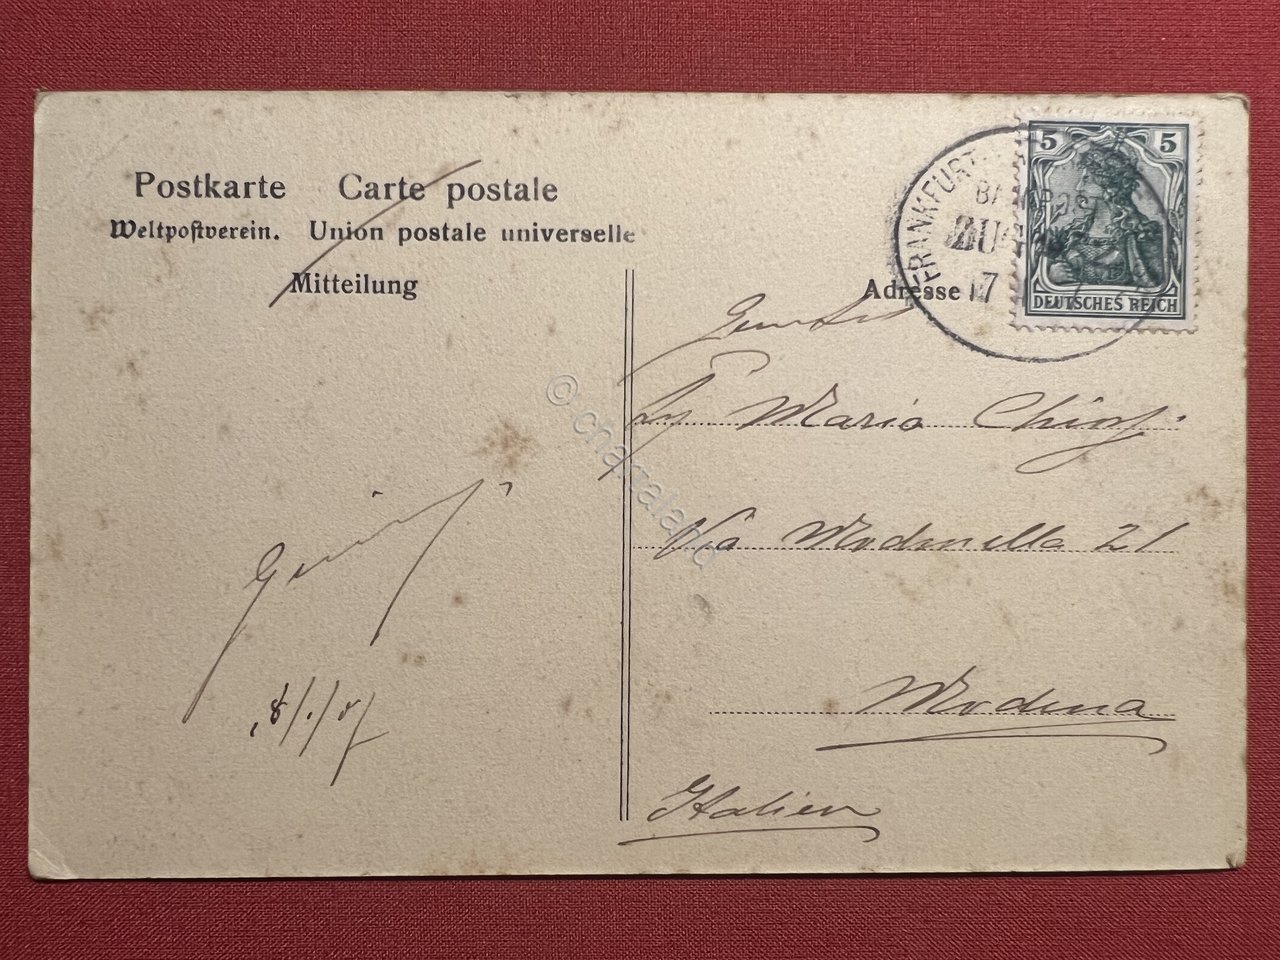 Postkarte Carte postale
Weltpostverein. Union postale universelle
Mitteilung
Adresse
5 5
DEUTSCHES REICH
FRANKFURT
BAHNPOST
ZUG
7
Maria
Via Modonella 21
Modena
Italien
8/1/07
© charzaland